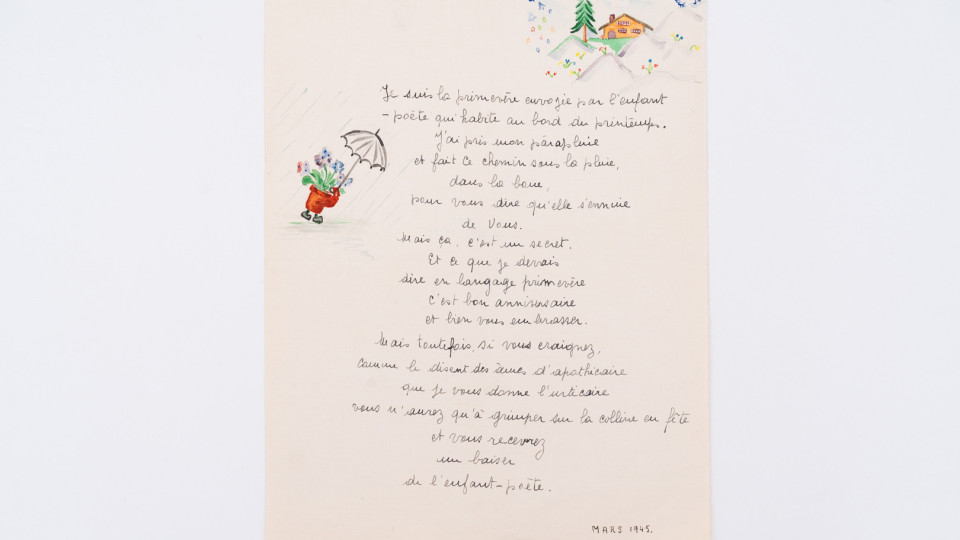 Je suis la primevère envoyée par l'enfant
-poète qui habite au bord du printemps.
J'ai pris mon parapluie
et fait ce chemin sous la pluie,
dans la boue,
pour vous dire qu'elle s'ennuie
de Vous.
Mais ça, c'est un secret.
Et ce que je devrais
dire en langage primevère
c'est bon anniversaire
et bien vous embrasser.
Mais toutefois, si vous craignez,
comme le disent des âmes d'apothicaire
que je vous donne l'urticaire
vous n'aurez qu'à grimper sur la colline en fête
et vous recevrez
un baiser
de l'enfant-poète.
MARS 1945.